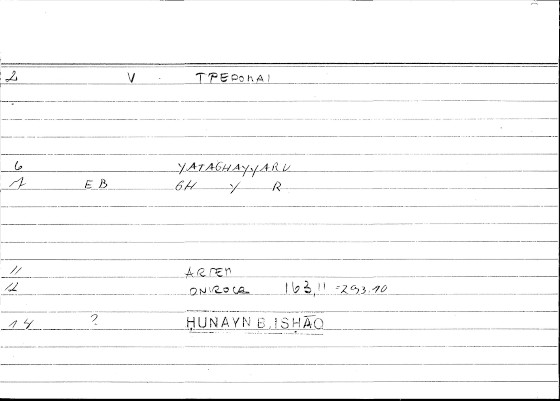 2 V ΤΡΕΡΟΜΑΙ
6 YATAGHAYYARU
1 EB GH Y R
11 ARTEM
12 ONIROCR 163,11 = 293.10
14 ? ḤUNAYN B. ISḤĀQ